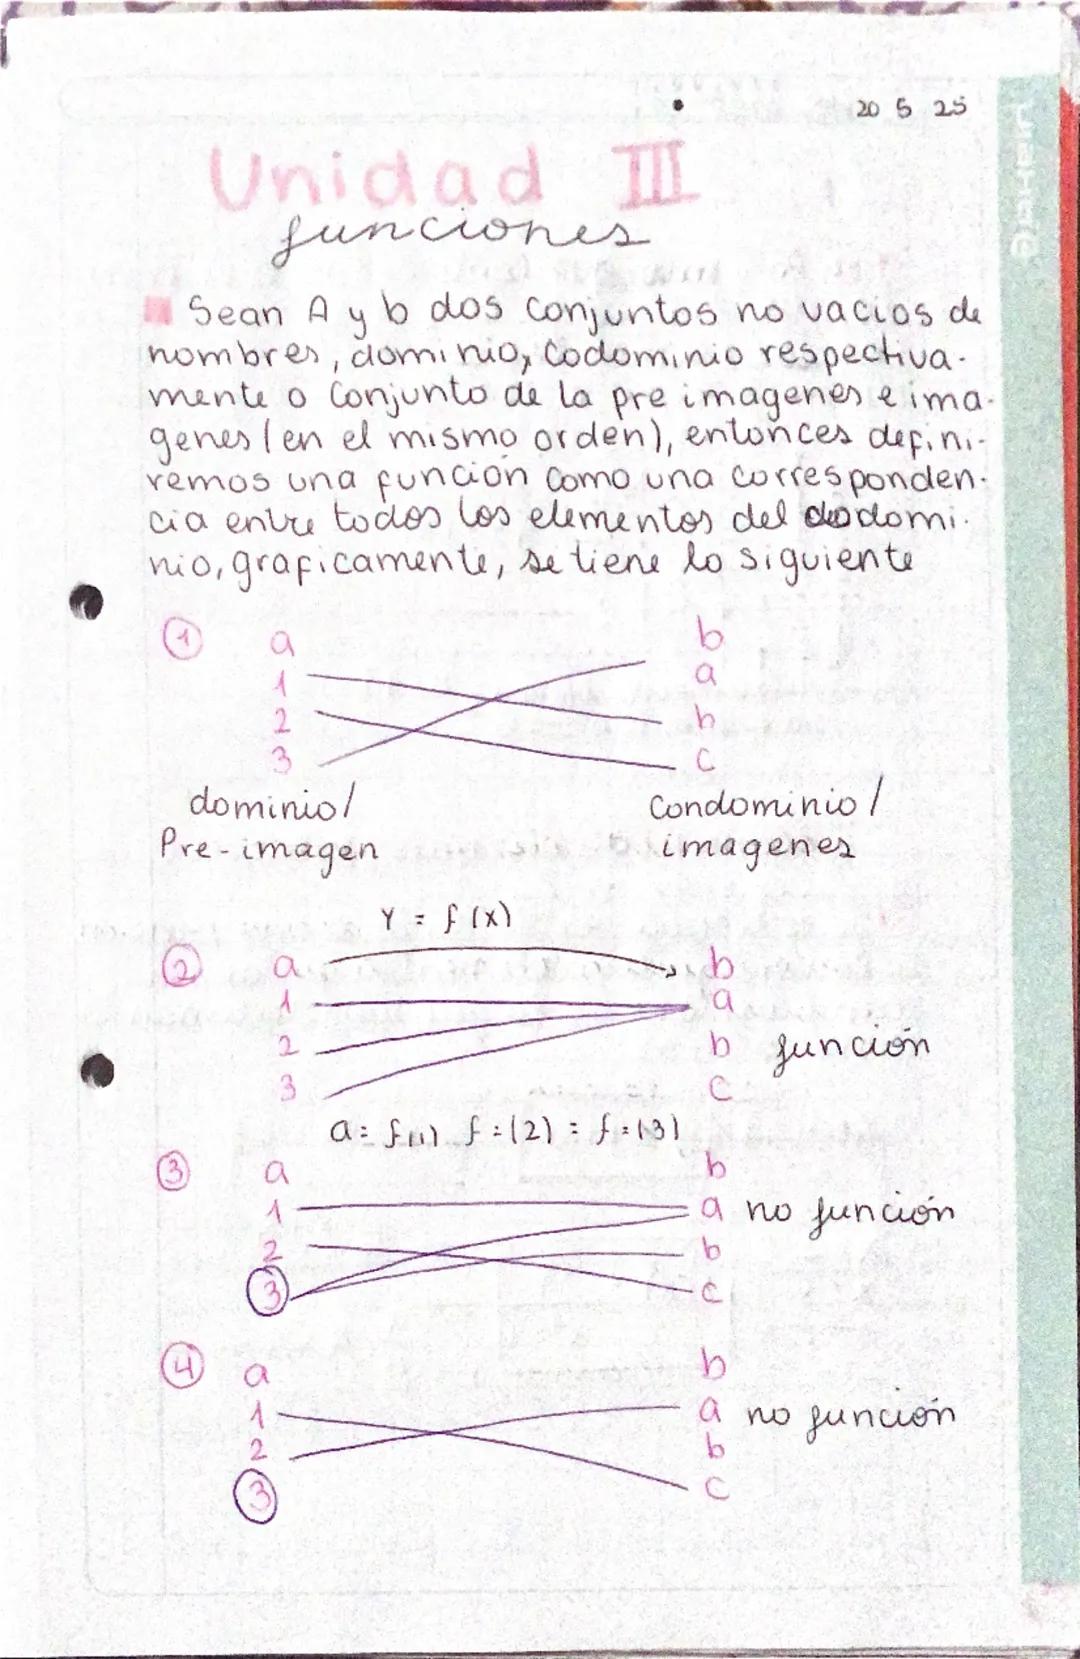 20 5 25
Unidad III
funciones
Sean A y b dos conjuntos no vacios de
nombres, dominio, codominio respectiva-
mente o conjunto de la pre imagenes e ima-
genes (en el mismo orden), entonces defini-
remos una función como una corresponden-
cia entre todos los elementos del dodomi-
nio, graficamente, se tiene lo siguiente
1 a b
1 a
2 b
3 c
dominio/ Condominio/
Pre-imagen imagenes
Y = f(x)
2 a b
1 a
2 b función
3 c
a= f(1) f=(2) = f=(3)
3 a b
1 a no función
2 b
3 c
4 a b
1 a no función
2 b
3 c